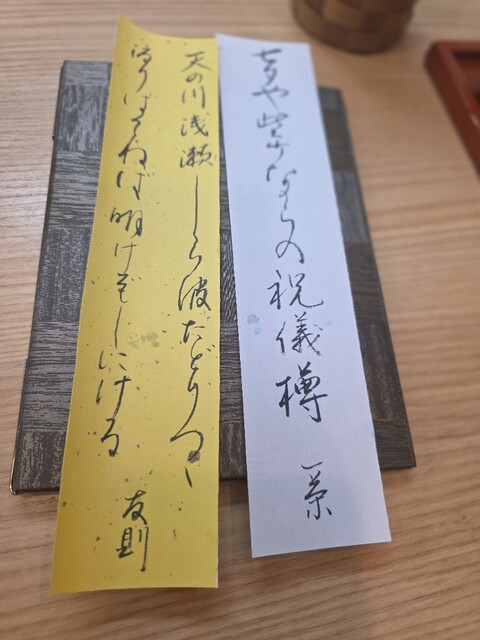 七夕や些少ながらの祝儀樽　一茶
天の川浅瀬しら波たどりつゝ
渡りはてねば明けぞしにける
友則